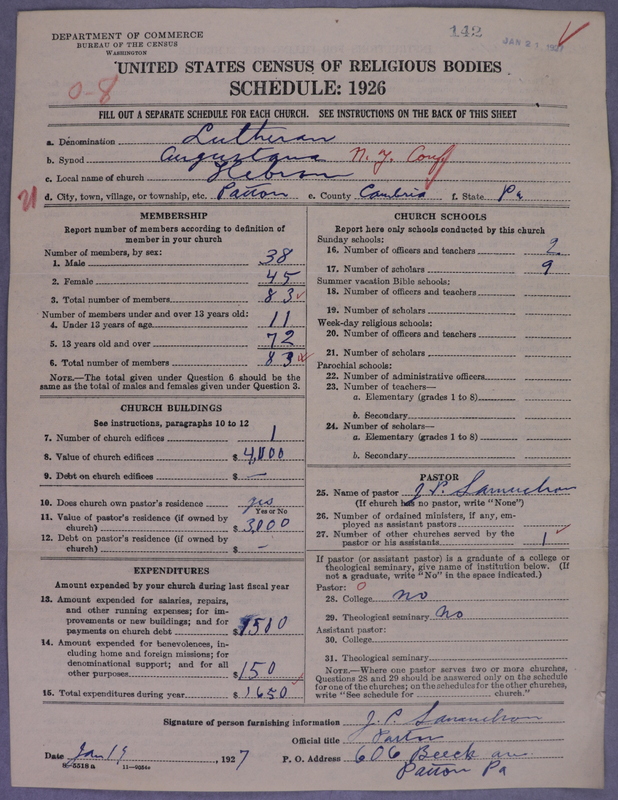 DEPARTMENT OF COMMERCE
BUREAU OF THE CENSUS
WASHINGTON
142
JAN 21 1927
UNITED STATES CENSUS OF RELIGIOUS BODIES
SCHEDULE: 1926
0-8
FILL OUT A SEPARATE SCHEDULE FOR EACH CHURCH. SEE INSTRUCTIONS ON THE BACK OF THIS SHEET
a. Denomination Lutheran
b. Synod Augustana N.Y. Conf
c. Local name of church Hebron
d. City, town, village, or township, etc. Patton e. County Cambria f. State Pa
MEMBERSHIP
Report number of members according to definition of
member in your church
Number of members, by sex:
1. Male 38
2. Female 45
3. Total number of members 83
Number of members under and over 13 years old:
4. Under 13 years of age 11
5. 13 years old and over 72
6. Total number of members 83
NOTE.—The total given under Question 6 should be the
same as the total of males and females given under Question 3.
CHURCH BUILDINGS
See instructions, paragraphs 10 to 12
7. Number of church edifices 1
8. Value of church edifices $ 4,000
9. Debt on church edifices $ —
10. Does church own pastor's residence yes
Yes or No
11. Value of pastor's residence (if owned by
church) $ 3,000
12. Debt on pastor's residence (if owned by
church) $ —
EXPENDITURES
Amount expended by your church during last fiscal year
13. Amount expended for salaries, repairs,
and other running expenses; for im-
provements or new buildings; and for
payments on church debt $ 1500
14. Amount expended for benevolences, in-
cluding home and foreign missions; for
denominational support; and for all
other purposes $ 150
15. Total expenditures during year $ 1650
CHURCH SCHOOLS
Report here only schools conducted by this church
Sunday schools:
16. Number of officers and teachers 2
17. Number of scholars 9
Summer vacation Bible schools:
18. Number of officers and teachers
19. Number of scholars
Week-day religious schools:
20. Number of officers and teachers
21. Number of scholars
Parochial schools:
22. Number of administrative officers
23. Number of teachers—
a. Elementary (grades 1 to 8)
b. Secondary
24. Number of scholars—
a. Elementary (grades 1 to 8)
b. Secondary
PASTOR
25. Name of pastor J. P. Samuelson
(If church has no pastor, write "None")
26. Number of ordained ministers, if any, em-
ployed as assistant pastors
27. Number of other churches served by the
pastor or his assistants 1
If pastor (or assistant pastor) is a graduate of a college or
theological seminary, give name of institution below. (If
not a graduate, write "No" in the space indicated.)
Pastor: 0
28. College no
29. Theological seminary No
Assistant pastor:
30. College
31. Theological seminary
NOTE.—Where one pastor serves two or more churches,
Questions 28 and 29 should be answered only on the schedule
for one of the churches; on the schedules for the other churches,
write "See schedule for church."
Signature of person furnishing information J. P. Samuelson
Official title Pastor
Date Jan 19, 1927 P. O. Address 606 Beech av.
Patton Pa
8-5518 a 11-9054a